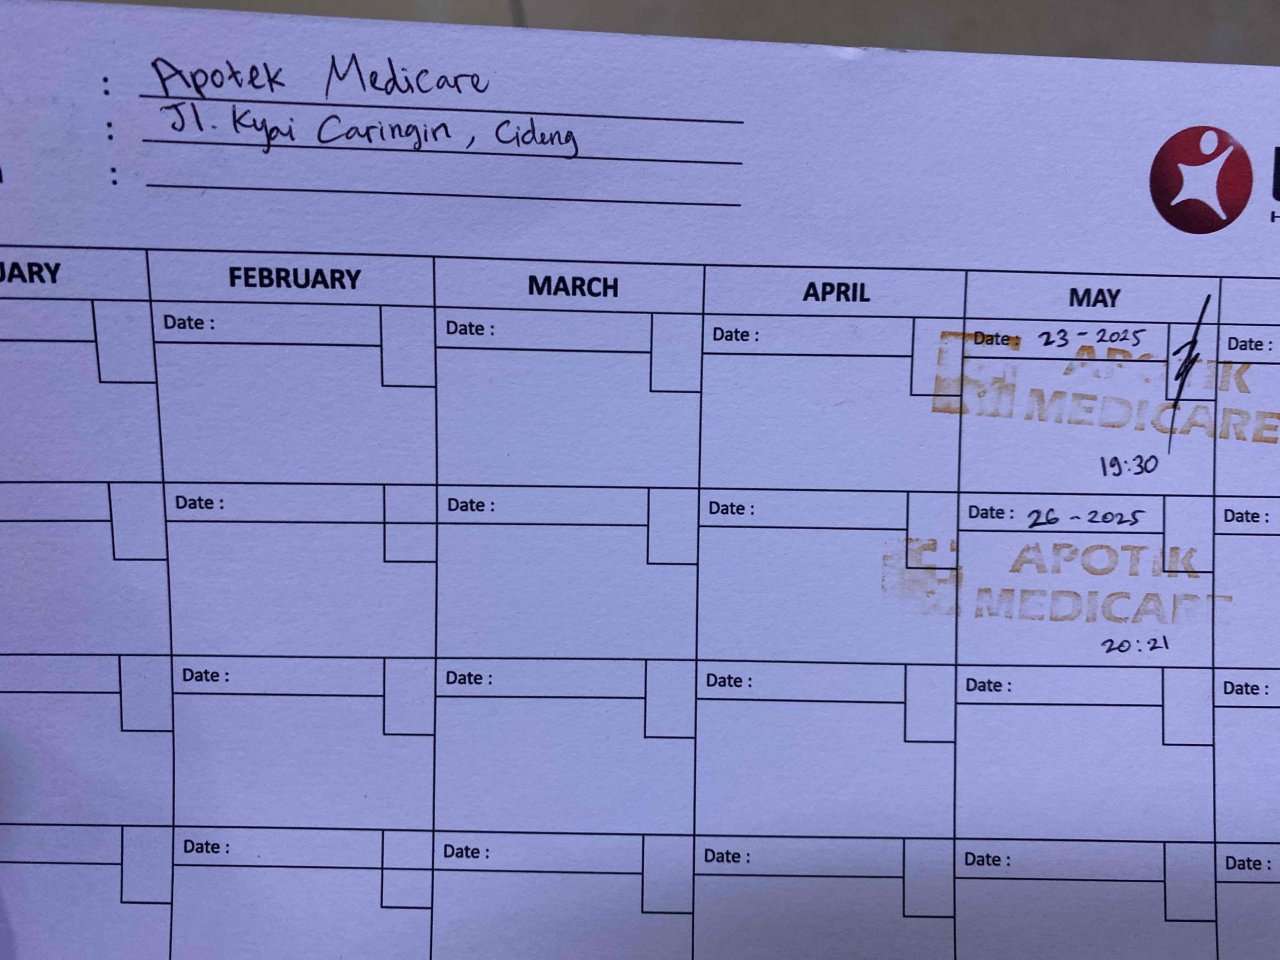 : Apotek Medicare
: Jl. Kyai Caringin, Cideng
:
FEBRUARY MARCH APRIL MAY
Date : Date : Date : Date : 23 - 2025 Date :
APOTIK
MEDICARE
19:30
Date : Date : Date : Date : 26 - 2025 Date :
APOTIK
MEDICARE
20:21
Date : Date : Date : Date : Date :
Date : Date : Date : Date : Date :